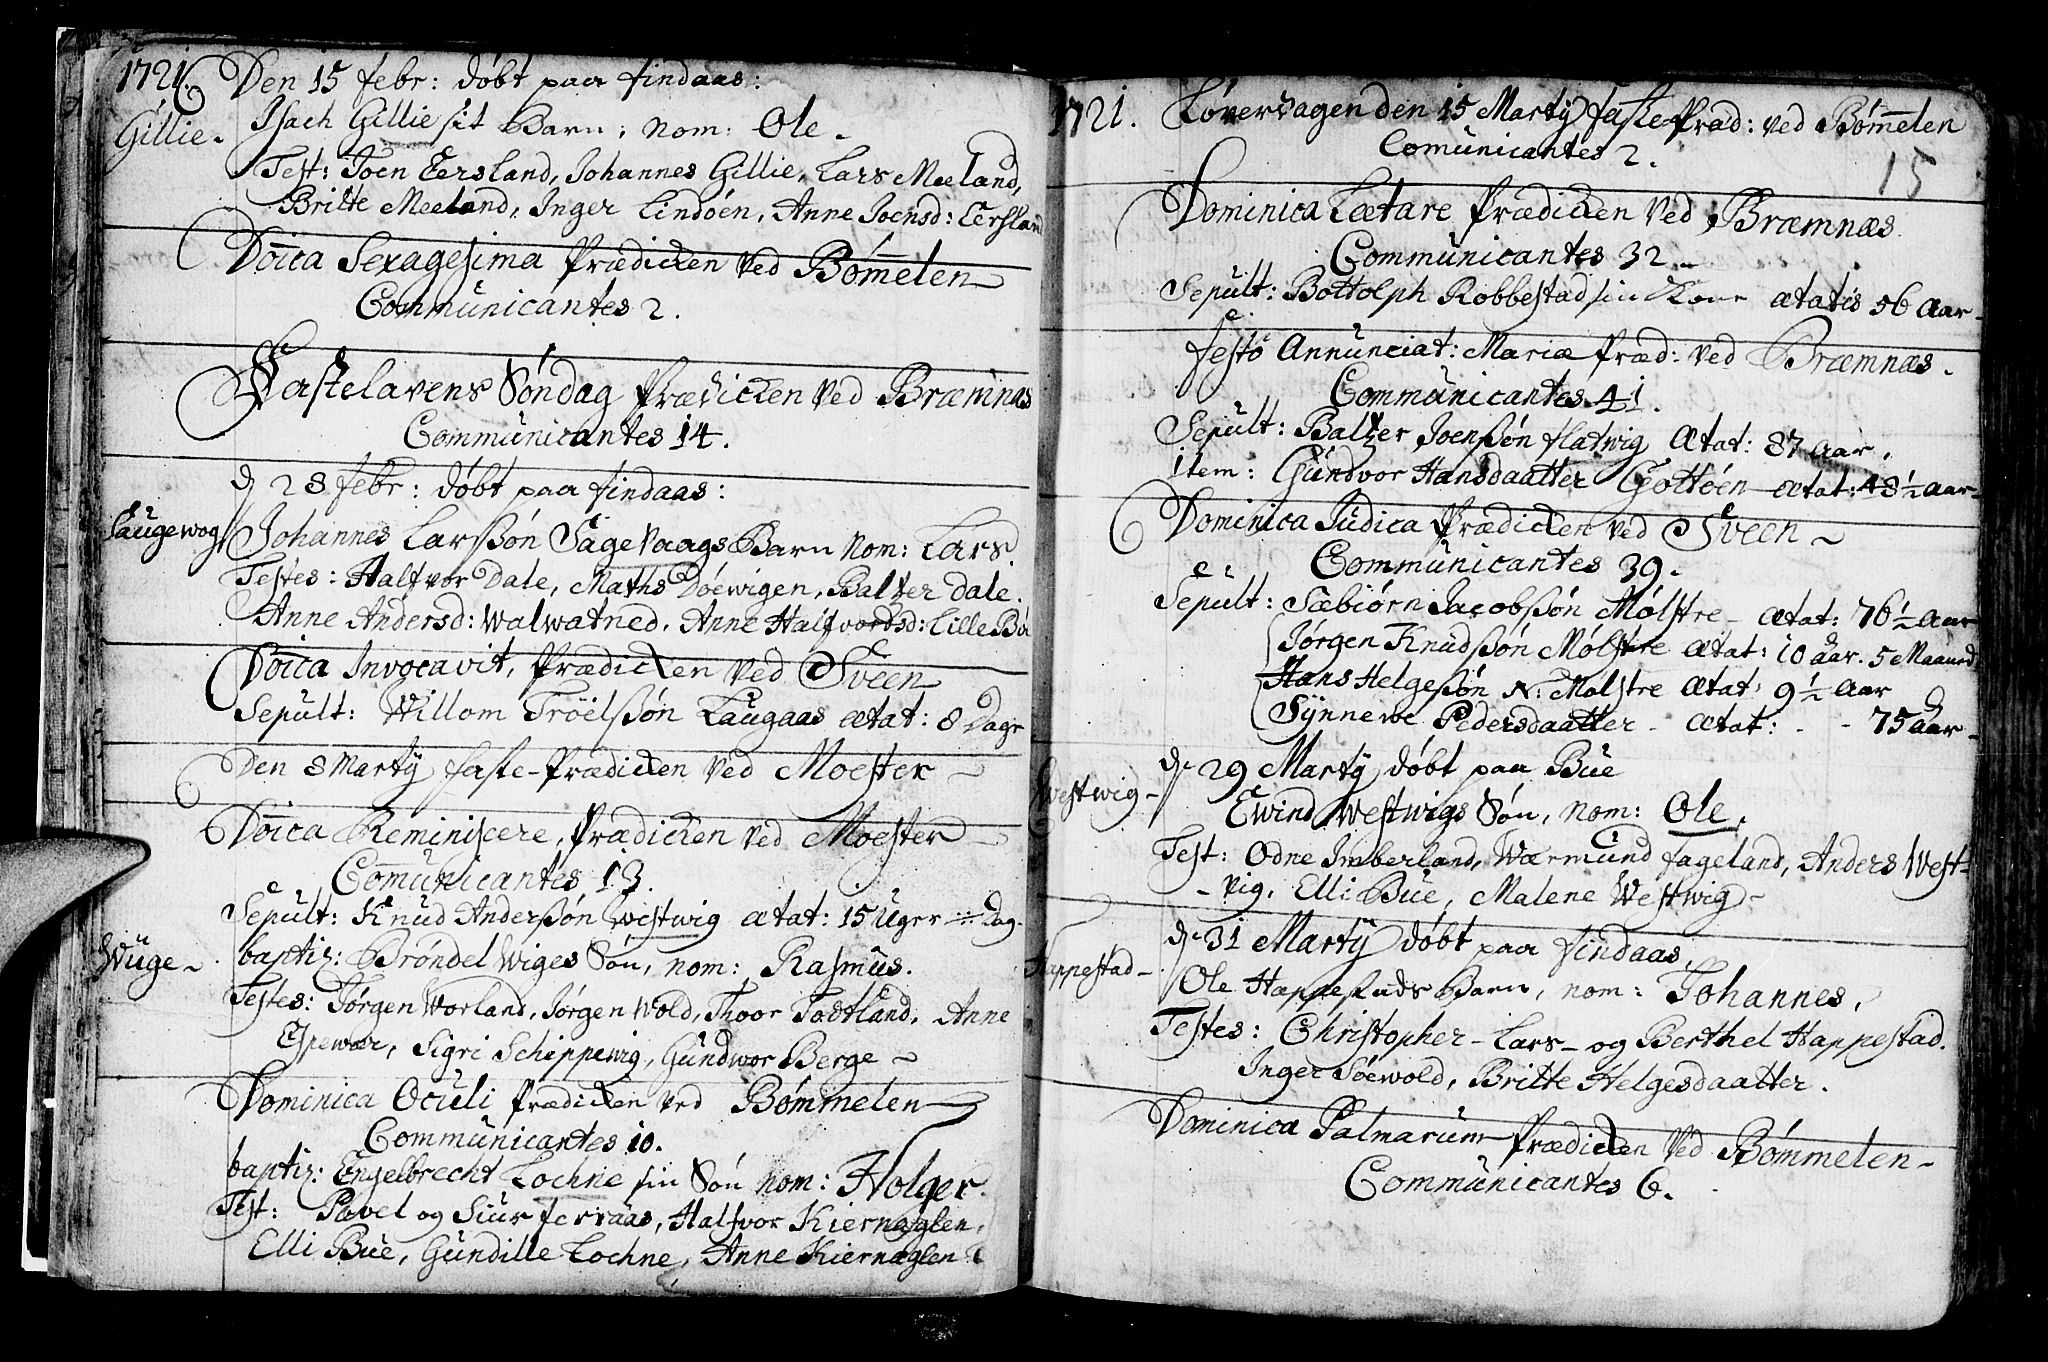 1721. Den 15 febr: døbt paa findaas:
Gillie. Isach Gillie sit Barn, nom: Ole.
Test: Joen Eersland, Johannes Gillie, Lars Meeland,
Britte Meeland, Inger Lindöen, Anne Joensd: Eersland
Doica Sexagesima Prædicken ved Bømelen
Communicantes 2.
Fastelavens Søndag Prædicken ved Bræmnæs
Communicantes 14.
d 28 febr: døbt paa findaas:
Saugewog Johannes Larssön Sagevaags Barn nom: Lars.
Testes: Halfvor Dale, Maths Döewigen, Baltzer Dale.
Anne Andersd: Walwatned, Anne Halfvordsd: Lille Bø
Doica Invocavit, Prædicken ved Sveen
Sepult: Willom Tröelssön Laugaas ætat: 8 Dage
Den 8 Martij faste-Prædicken ved Moester
Doica Reminiscere, Prædicken ved Moester
Comunicantes 13.
Sepult: Knud Anderssön Westwig ætat: 15 Uger Dag.
Wuge baptiz: Brøndel Wiges Søn, nom: Rasmus.
Testes: Jørgen Worland, Jørgen Wold, Thoor Todtland, Anne
Espewær, Sigri Schippewig, Gundwor Berge
Dominica Oculi Prædicken ved Bømmelen
Communicantes 10.
baptiz: Engelbrecht Lochne sin Søn nom: Holger.
Test: Povel og Siur ferraas, Halfvor Kiernaglen,
Elli Bue, Gundille Lochne, Anne Kiernæglen
1721. Löverdagen den 15 Martij faste Præd: ved Bømelen
Comunicantes 2.
15
Dominica Lætare Prædicken ved Bræmnæs
Communicantes 32
Sepult: Bottolph Robbestad sin Kone ætatis 56 Aar
Festo Annunciat: Mariæ Præd: ved Bræmnæs.
Communicantes 41.
Sepult: Baltzer Joenssön flatwig Ætat: 87 Aar,
item: Gundvor Hansdaatter Gottöen ætat: 48½ Aar
Dominica Judica Prædicken ved Sveen
Communicantes 39.
Sepult: Sæbiørn Jacobssön Mølstre ætat: 76½ Aar
Jørgen Knudssön Mølstre ætat: 10 Aar. 5 Maaned
Hans Helgesön N: Mølstre ætat: 9½ Aar
Synnewe Pedersdaatter ætat: 75 Aar
d. 29 Martij døbt paa Bue
Westwig Ewind Westwigs Søn, nom: Ole.
Test: Odne Imberland, Wærmund Fageland, Anders West-
-vig, Elli Bue, Malene Westwig
d. 31 Martij døbt paa findaas.
Happestad Ole Happestads Barn, nom: Johannes,
Testes: Christopher Lars og Berthel Happestad.
Inger Söewold, Britte Helgesdaatter.
Dominica Palmarum Prædicken ved Bømmelen
Communicantes 6.